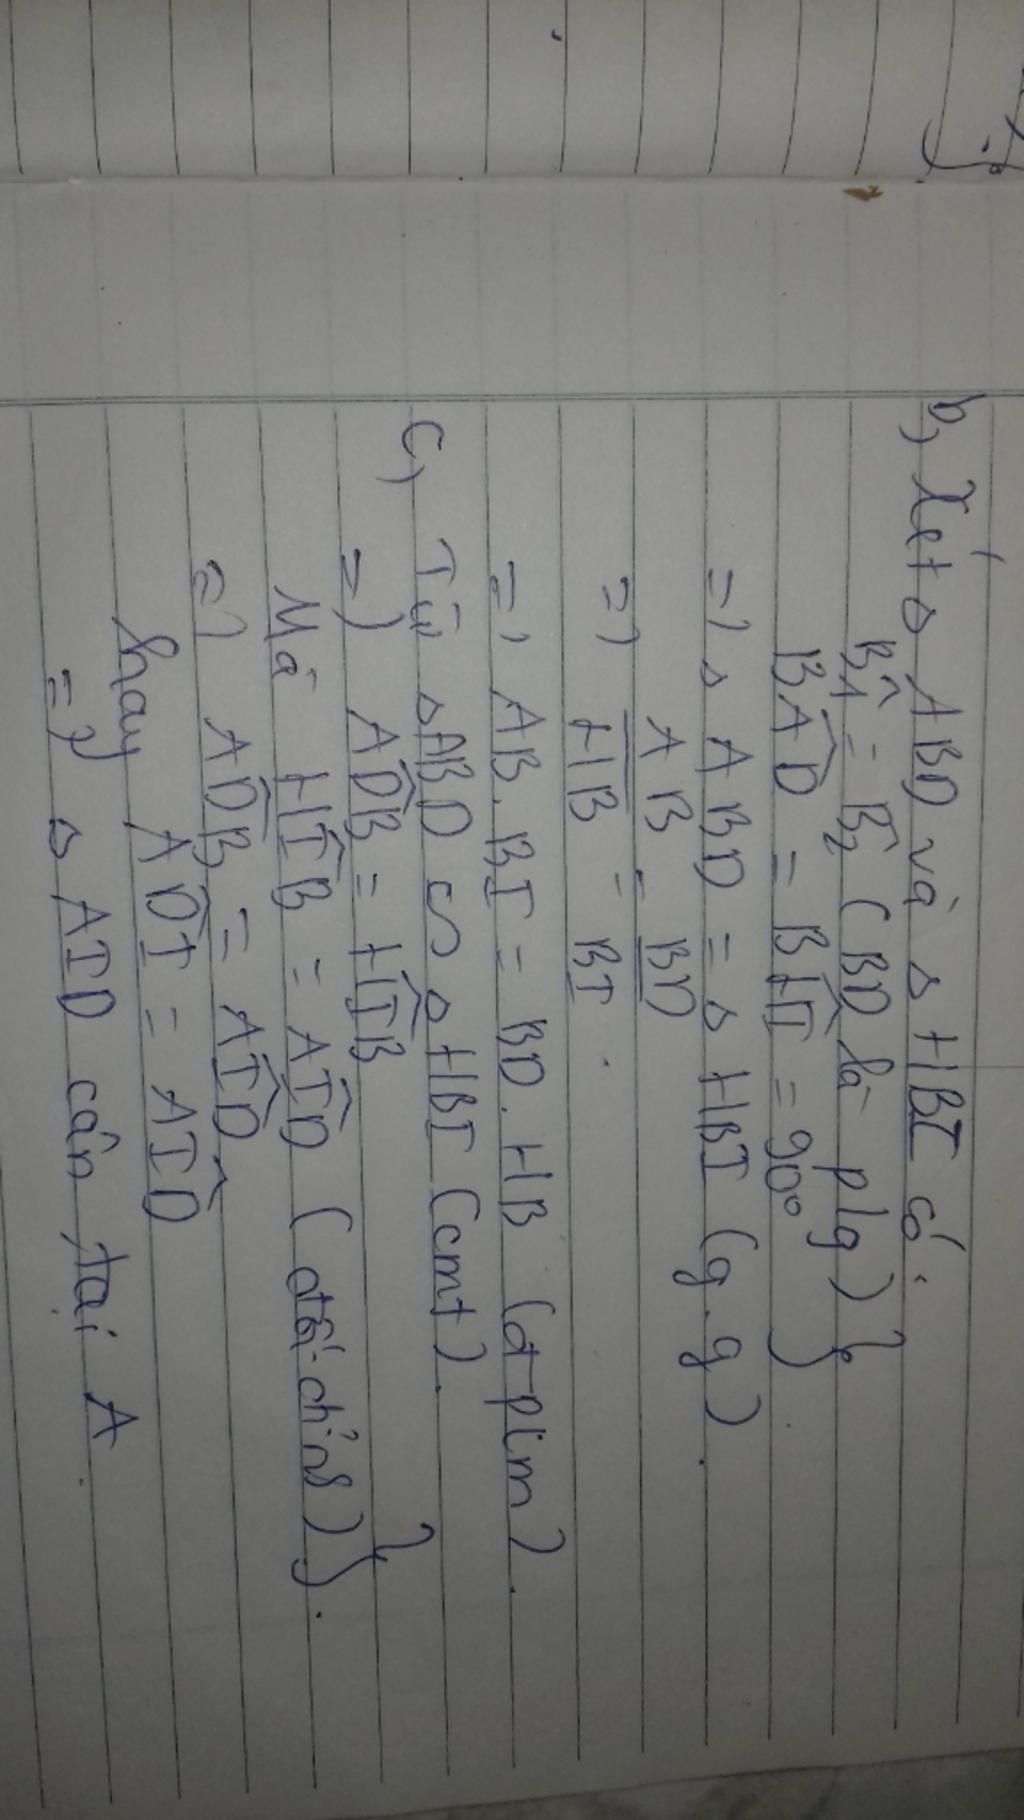 b, Xét Δ ABD và Δ HBI có:
B̂1 = B̂2 (BD là p/g) }
BÂD = BĤI = 90° }
=> Δ ABD = Δ HBI (g.g)
=> AB/HB = BD/BI.
=> AB. BI = BD. HB (đpcm).
c, Từ ΔABD ∽ ΔHBI (cmt).
=> AD̂B = HÎB }
Mà HÎB = AÎD (đối đỉnh) }.
=> AD̂B = AÎD
hay AD̂I = AÎD
=> Δ AID cân tại A.